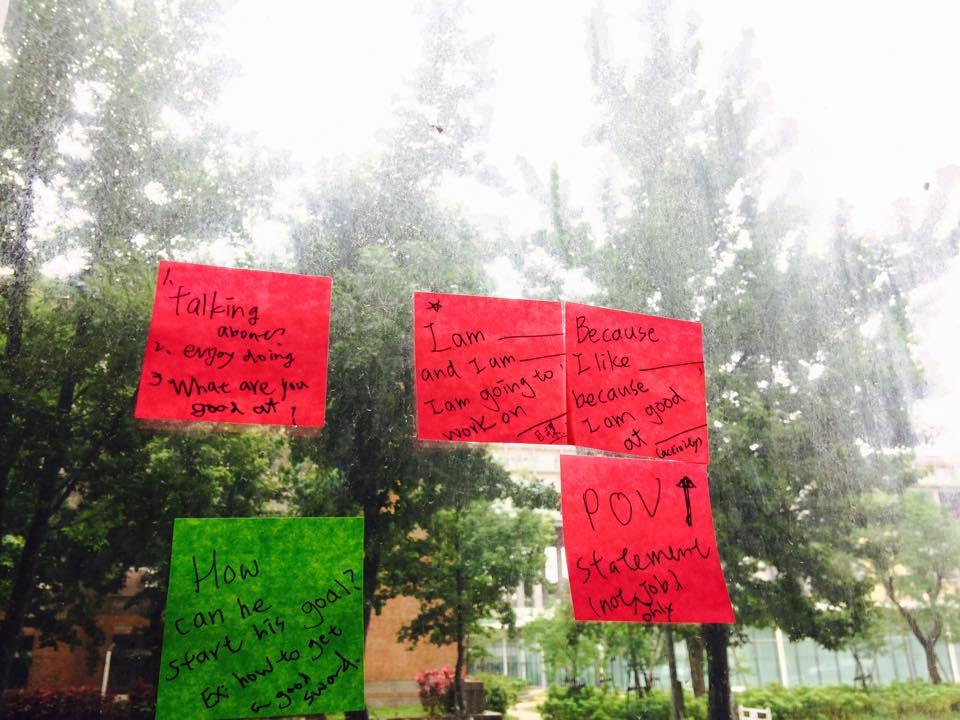 1.
talking
about
2. enjoy doing
3 What are you
good at ?
*
I am ____
and I am ____
I am going to
work on ____
目標
Because
I like ____,
because
I am good
at ____
(activity)
POV ↑
statement
(not job)
only
How
can he
start his goal?
Ex: how to get
a good
sword.